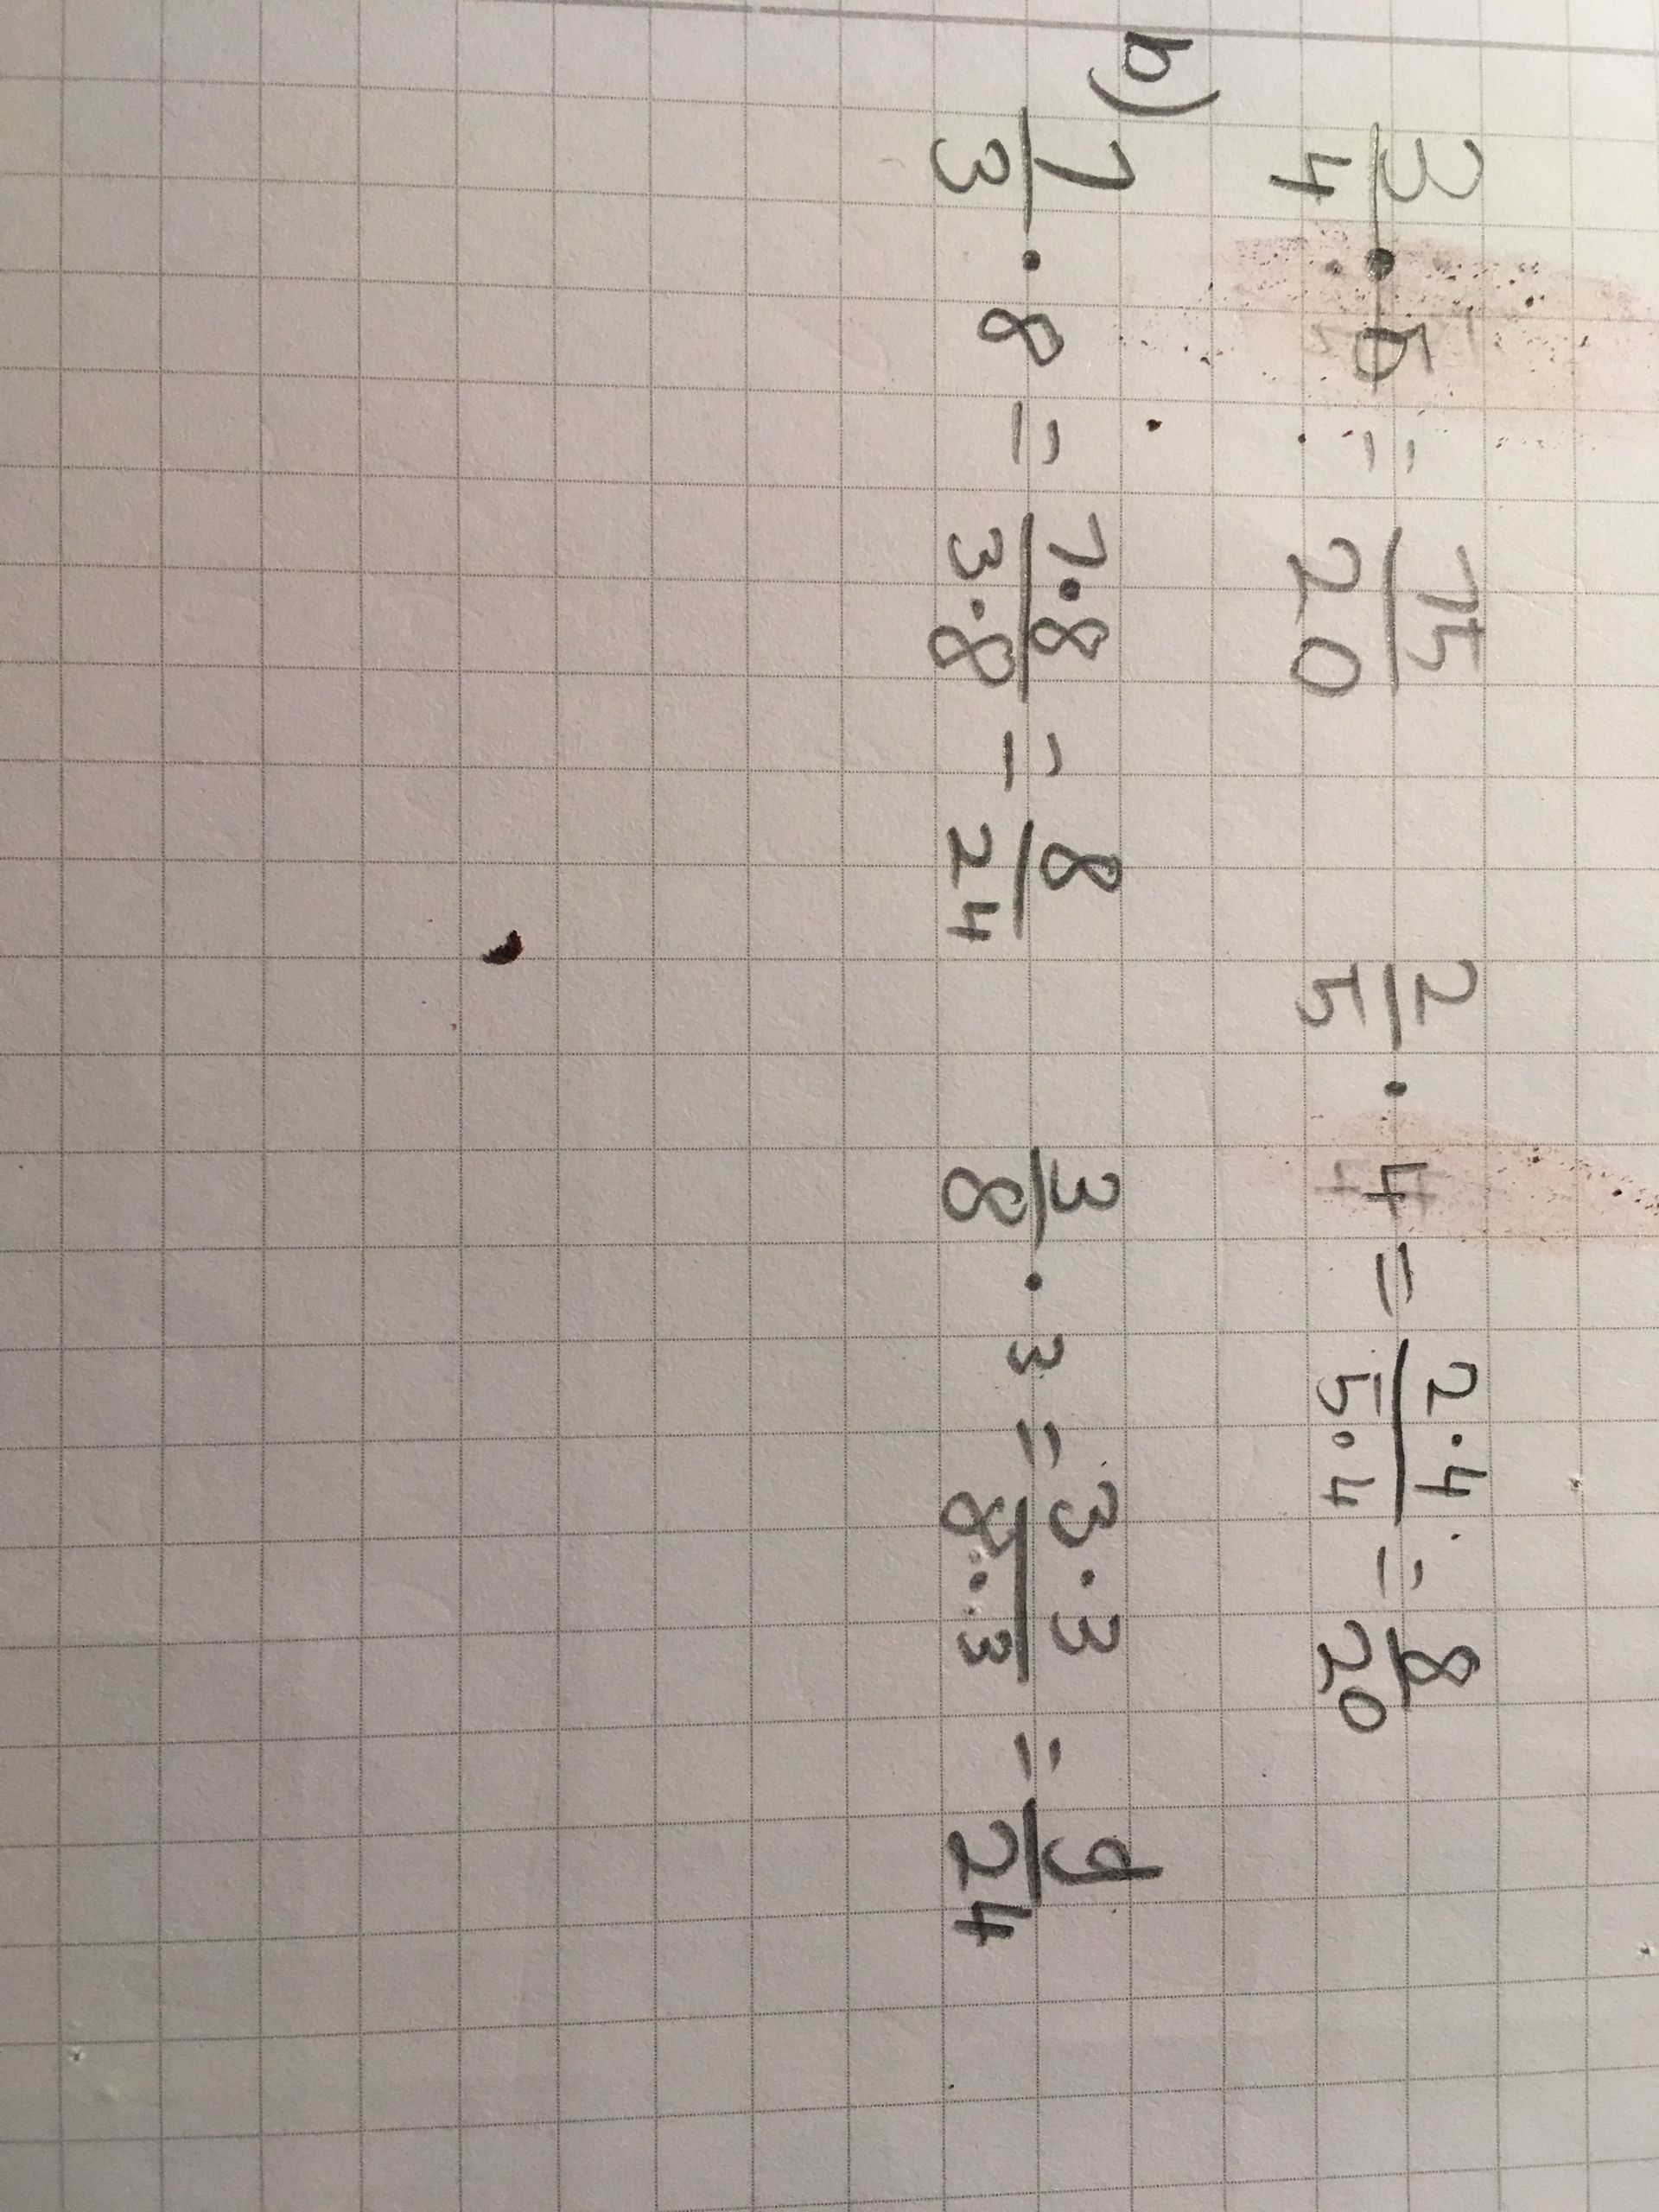 3/4 · 5 = 15/20   2/5 · 4 = 2·4/5·4 = 8/20
b)
1/3 · 8 = 1·8/3·8 = 8/24   3/8 · 3 = 3·3/8·3 = 9/24